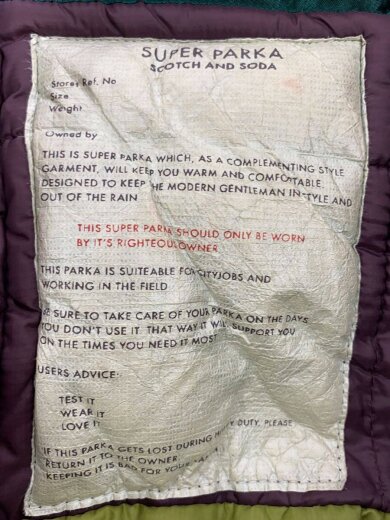 SUPER PARKA
SCOTCH AND SODA
Stores Ref. No
Size
Weight
Owned by
THIS IS SUPER PARKA WHICH, AS A COMPLEMENTING STYLE
GARMENT, WILL KEEP YOU WARM AND COMFOTABLE.
DESIGNED TO KEEP THE MODERN GENTLEMAN IN-TYLE AND
OUT OF THE RAIN
THIS SUPER PARKA SHOULD ONLY BE WORN
BY IT'S RIGHTEOUL OWNER
THIS PARKA IS SUITEABLE FOR CITYJOBS AND
WORKING IN THE FIELD
BE SURE TO TAKE CARE OF YOUR PARKA ON THE DAYS
YOU DON'T USE IT. THAT WAY IT WILL SUPPORT YOU
ON THE TIMES YOU NEED IT MOST
USERS ADVICE:
TEST IT
WEAR IT
LOVE IT
IF THIS PARKA GETS LOST DURING DUTY, PLEASE
RETURN IT TO THE OWNER.
KEEPING IT IS BAD FOR YOUR